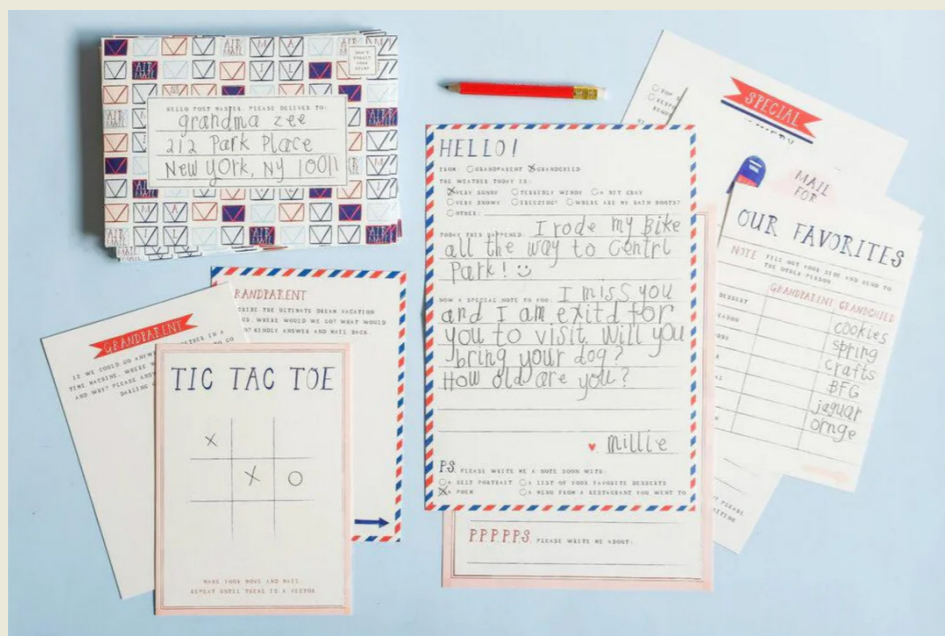 AIR MAIL
DON'T FORGET YOUR STAMP
HELLO POST MASTER, PLEASE DELIVER TO:
grandma zee
212 Park Place
New York, NY 10011
HELLO!
FROM: GRANDPARENT GRANDCHILD
THE WEATHER TODAY IS:
VERY SUNNY TERRIBLY WINDY A BIT GRAY
VERY SNOWY FREEZING! WHERE ARE MY RAIN BOOTS?
OTHER:
TODAY THIS HAPPENED: I rode my Bike
all the way to Centrl
Park!
NOW A SPECIAL NOTE TO YOU: I miss you
and I am exitd for
you to visit. Will you
bring your dog?
How old are you?
millie
P.S. PLEASE WRITE ME A NOTE SOON WITH:
A SELF PORTRAIT A LIST OF YOUR FAVORITE DESSERTS
A POEM A MENU FROM A RESTAURANT YOU WENT TO
P.P.P.P.P.S. PLEASE WRITE ME ABOUT:
SPECIAL
MAIL
FOR
OUR FAVORITES
NOTE FILL OUT YOUR SIDE AND SEND TO
THE OTHER PERSON
GRANDPARENT GRANDCHILD
DESSERT cookies
spring
crafts
BFG
jaguar
ornge
GRANDPARENT
THE ULTIMATE DREAM VACATION
WHERE WOULD WE GO? WHAT WOULD
KINDLY ANSWER AND MAIL BACK
GRANDPARENT
IF WE COULD GO
TIME MACHINE, WHERE
AND WHY? PLEASE
DARLING
TIC TAC TOE
X
X O
MAKE YOUR MOVE AND MAIL
REPEAT UNTIL THERE IS A VICTOR